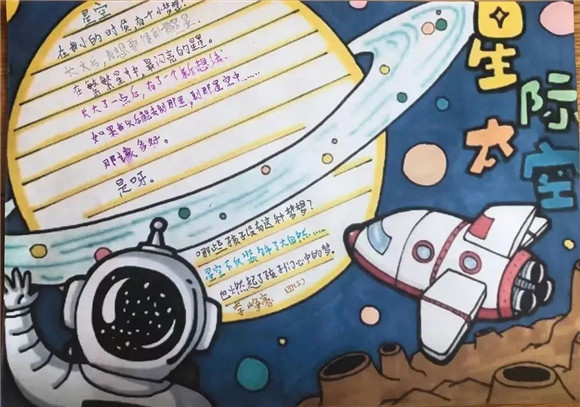 星际太空
星空
在我小的时候，有个小梦想：
长大后，我想要
在繁繁星中，最闪亮的星星。
长大了一点后，有了一个新想法：
如果我以后能去到那里，到那星空中……
那该多好。
是呀。
哪些孩子没有这种梦想？
星空不仅装饰了大自然……
也燃起了孩子们心中的梦。